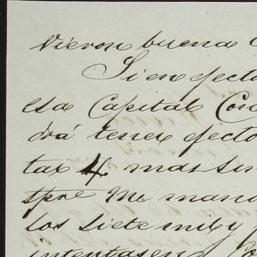 vieron buena
Si en efecto
esa Capital Con
drá tener efecto
tar 4 mas su
tpre Me man
los siete mil y
intentasen